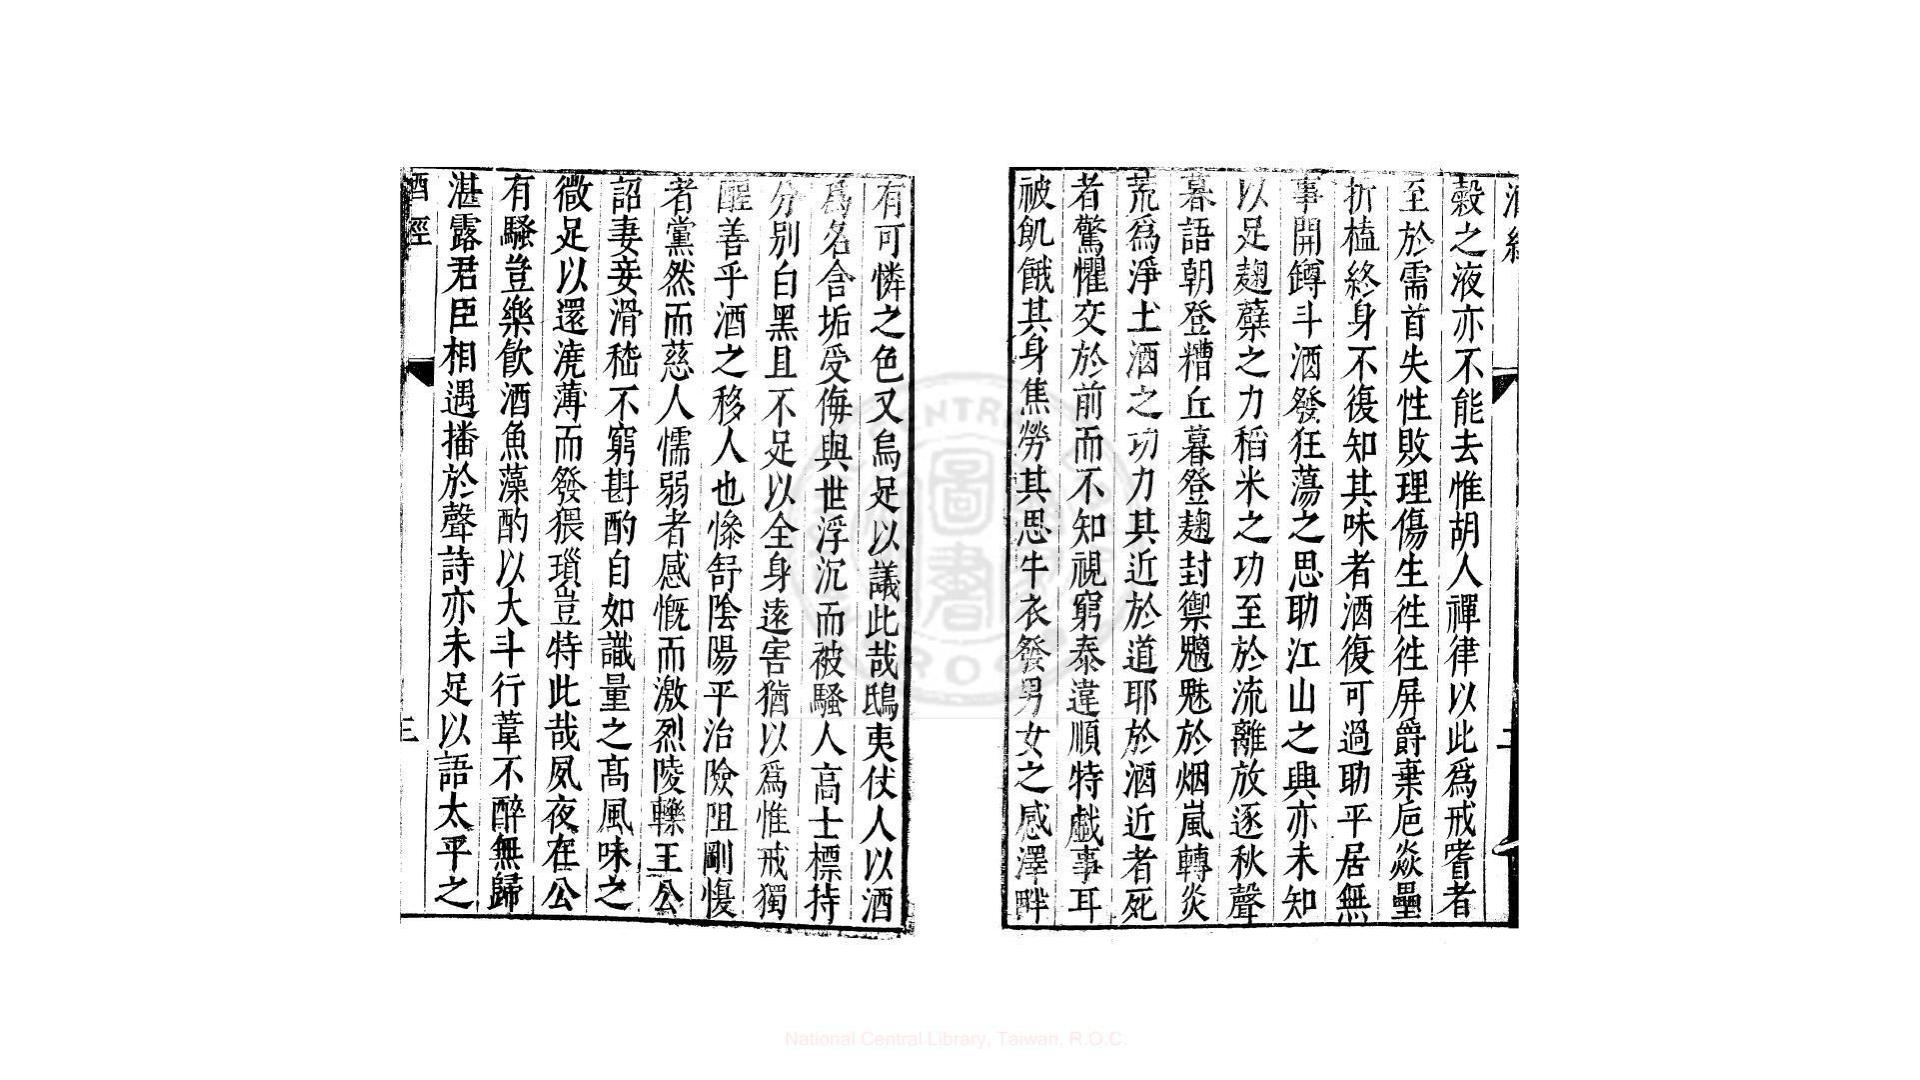 酒經
穀之液亦不能去惟胡人禪律以此爲戒嗜者
至於濡首失性敗理傷生徃徃屏爵棄巵焱罍
折榼終身不復知其味者酒復可過助平居無
事開罇斗酒發狂蕩之思助江山之興亦未知
以足麹蘗之力稻米之功至於流離放逐秋聲
暮語朝登糟丘暮登麹封禦魑魅於烟嵐轉炎
荒爲淨土酒之功力其近於道耶於酒近者死
者驚懼交於前而不知視窮泰違順特戲事耳
被飢餓其身焦勞其思牛衣發男女之感澤畔
有可憐之色又烏足以議此哉鴟夷仗人以酒
爲名含垢受侮與世浮沉而被騷人高士標持
分別白黑且不足以全身遠害猶以爲惟戒獨
醒善乎酒之移人也慘舒陰陽平治險阻剛愎
者薰然而慈人懦弱者感慨而激烈陵轢王公
詔妻妾滑稽不窮斟酌自如識量之高風味之
微足以還澆薄而發猥瑣豈特此哉夙夜在公
有騷豈樂飮酒魚藻酌以大斗行葦不醉無歸
湛露君臣相遇播於聲詩亦未足以語太平之
酒經
三
National Central Library, Taiwan, R.O.C.